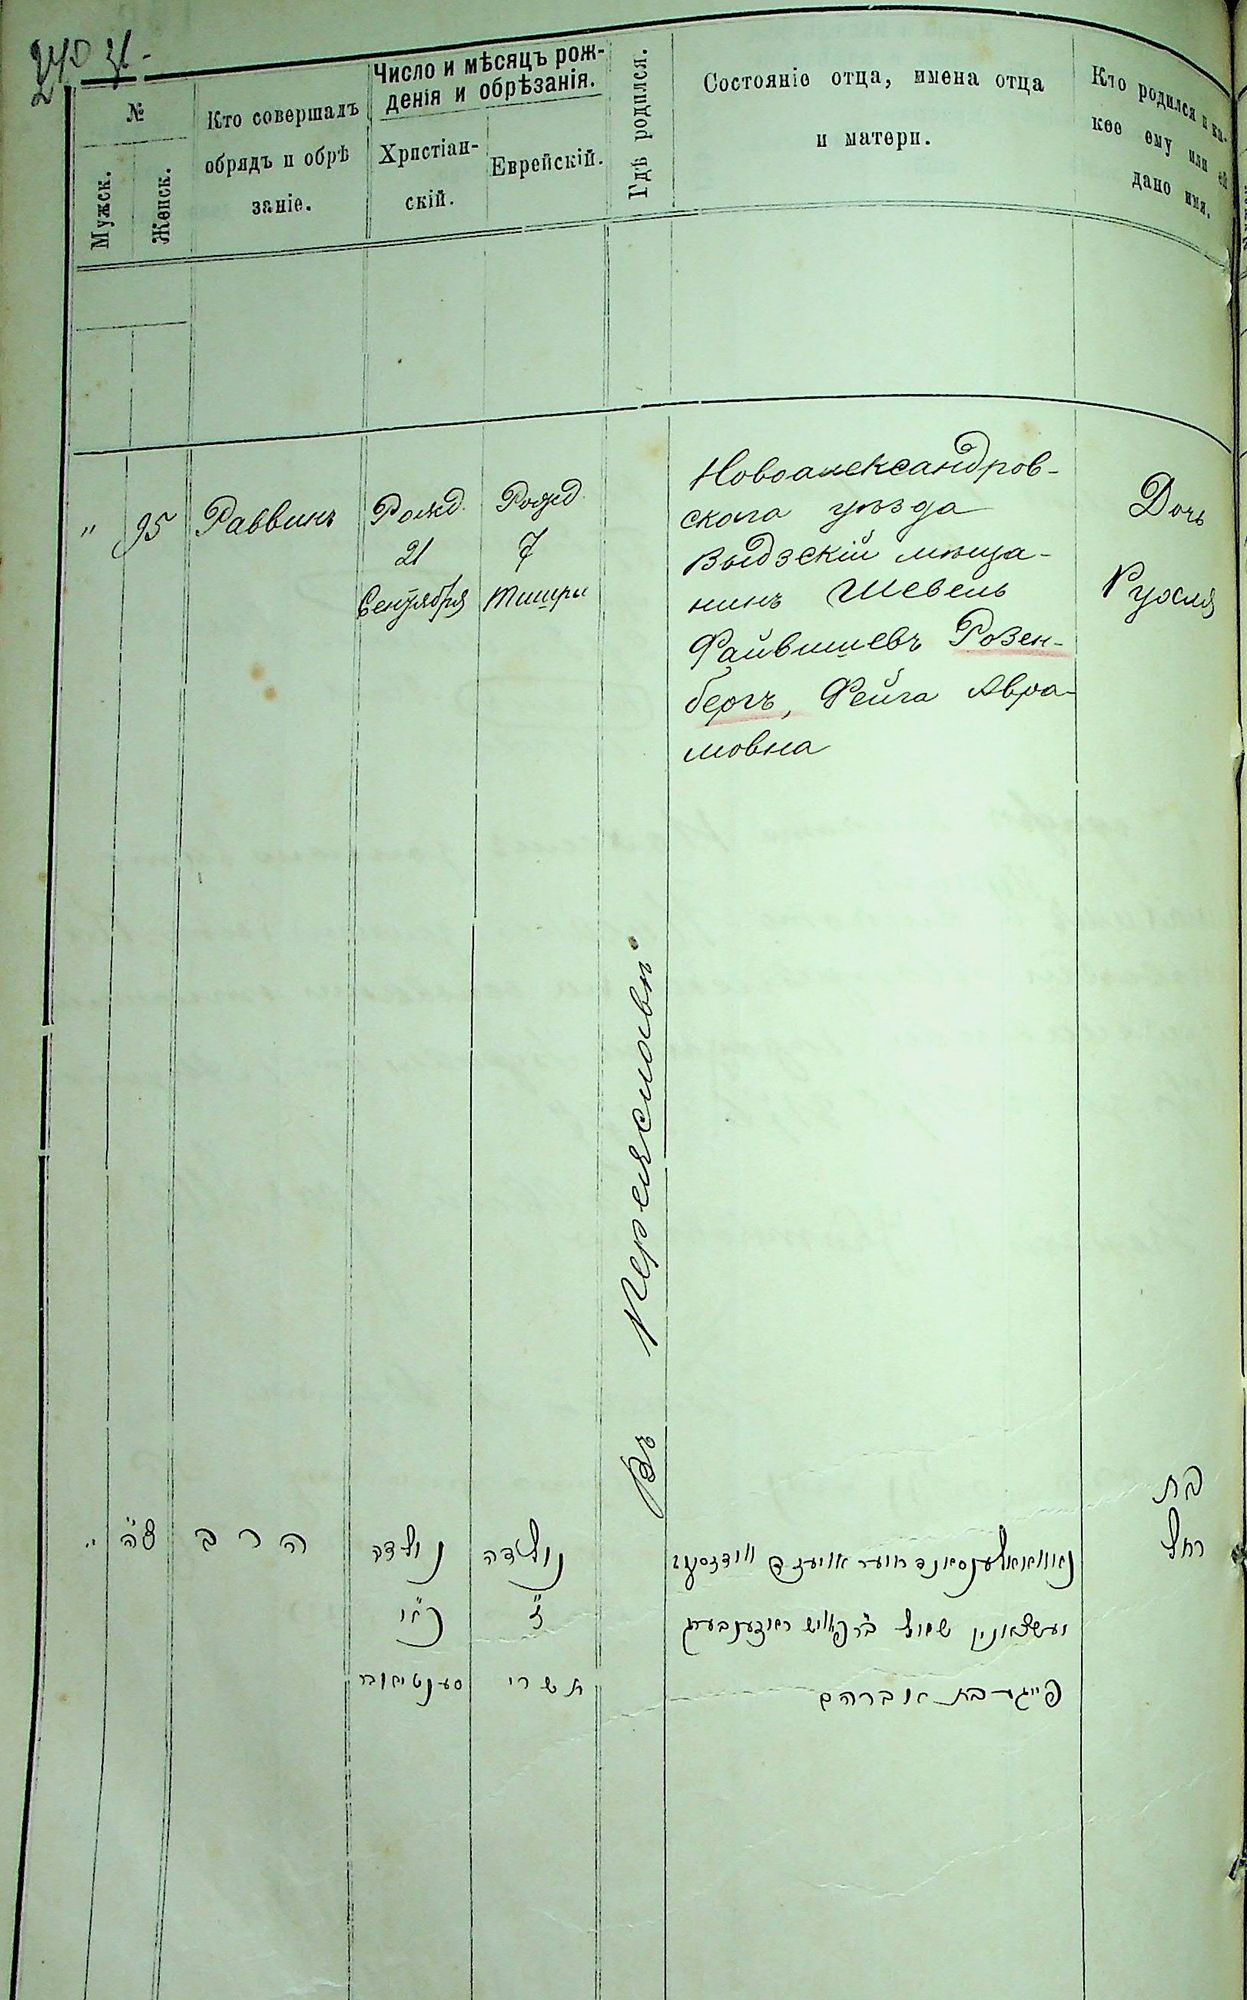 №
Мужск.
Женск.
Кто совершалъ
обрядъ и обрѣ
заніе.
Число и мѣсяцъ рож-
денія и обрѣзанія.
Христіан-
скій.
Еврейскій.
Гдѣ родился.
Состояніе отца, имена отца
и матери.
Кто родился и ка-
кое ему или ей
дано имя.
" 95 Раввинъ
Рожд.
21
Сентября
Рожд.
7
Тишри
Въ Переяславѣ
Новоалександров-
скаго уѣзда
Видзскій мѣща-
нинъ Шевель
Файвишевъ Розен-
бергъ, Фейга Авра-
мовна
Дочь
Рухля
" צ״ה הרב
נולדה
כ״א
סענטיאבר
נולדה
ז׳
תשרי
שאול ראזענבערג
פייגע בת אברהם
בת
רחל